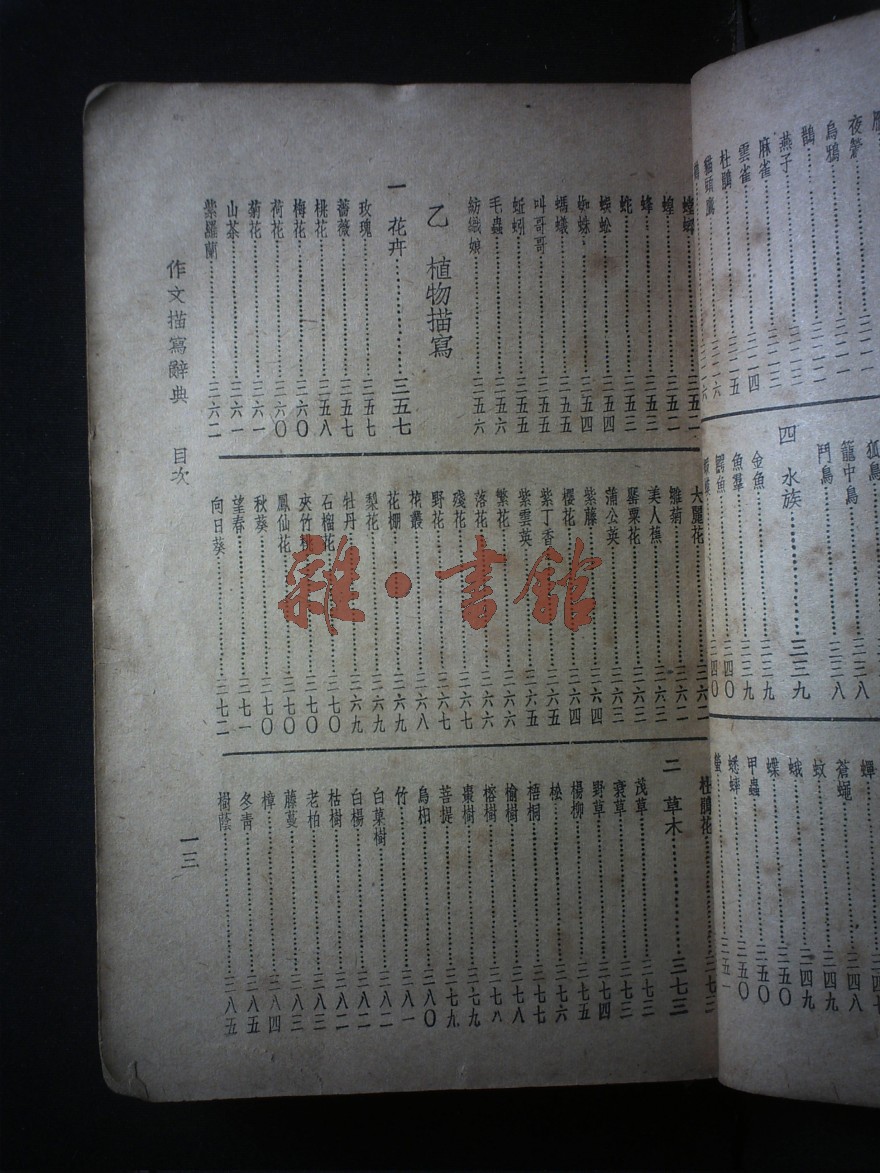 夜鶯
烏鴉……三三二
鵲……三三二
燕子……三三三
麻雀……三三三
雲雀……三三四
杜鵑……三三五
貓頭鷹……三三六
三三六
三三八
籠中鳥……三三八
鬥鳥……三三八
四 水族……三三九
金魚……三三九
魚羣……三三九
鱷魚……三四〇
三四〇
蟬……三四七
蒼蠅……三四八
蚊……三四九
蛾……三四九
蝶……三五〇
甲蟲……三五〇
蟋蟀……三五〇
螢……三五一
螳螂……三五二
蝗……三五二
蜂……三五三
蛇……三五三
蜈蚣……三五四
蜘蛛……三五四
螞蟻……三五五
叫哥哥……三五五
蚯蚓……三五五
毛蟲……三五六
紡織娘……三五六
乙 植物描寫
一 花卉……三五七
玫瑰……三五七
薔薇……三五七
桃花……三五八
梅花……三六〇
荷花……三六〇
菊花……三六一
山茶……三六一
紫羅蘭……三六二
大麗花……三六二
雛菊……三六二
美人蕉……三六三
罌粟花……三六三
蒲公英……三六三
紫藤……三六四
櫻花……三六四
紫丁香……三六五
紫雲英……三六五
繁花……三六六
落花……三六六
殘花……三六七
野花……三六七
花叢……三六八
花棚……三六九
梨花……三六九
牡丹……三六九
石榴花……三七〇
夾竹桃……三七〇
鳳仙花……三七〇
秋葵……三七〇
望春……三七一
向日葵……三七二
杜鵑花……三七三
二 草木……三七三
茂草……三七三
衰草……三七三
野草……三七四
楊柳……三七五
松……三七六
梧桐……三七七
榆樹……三七八
榕樹……三七八
棗樹……三七九
菩提……三七九
烏桕……三八〇
竹……三八一
白菓樹……三八二
白楊……三八二
枯樹……三八二
老柏……三八三
藤蔓……三八三
樟……三八四
冬青……三八五
樹蔭……三八五
作文描寫辭典 目次
一三
雜·書館